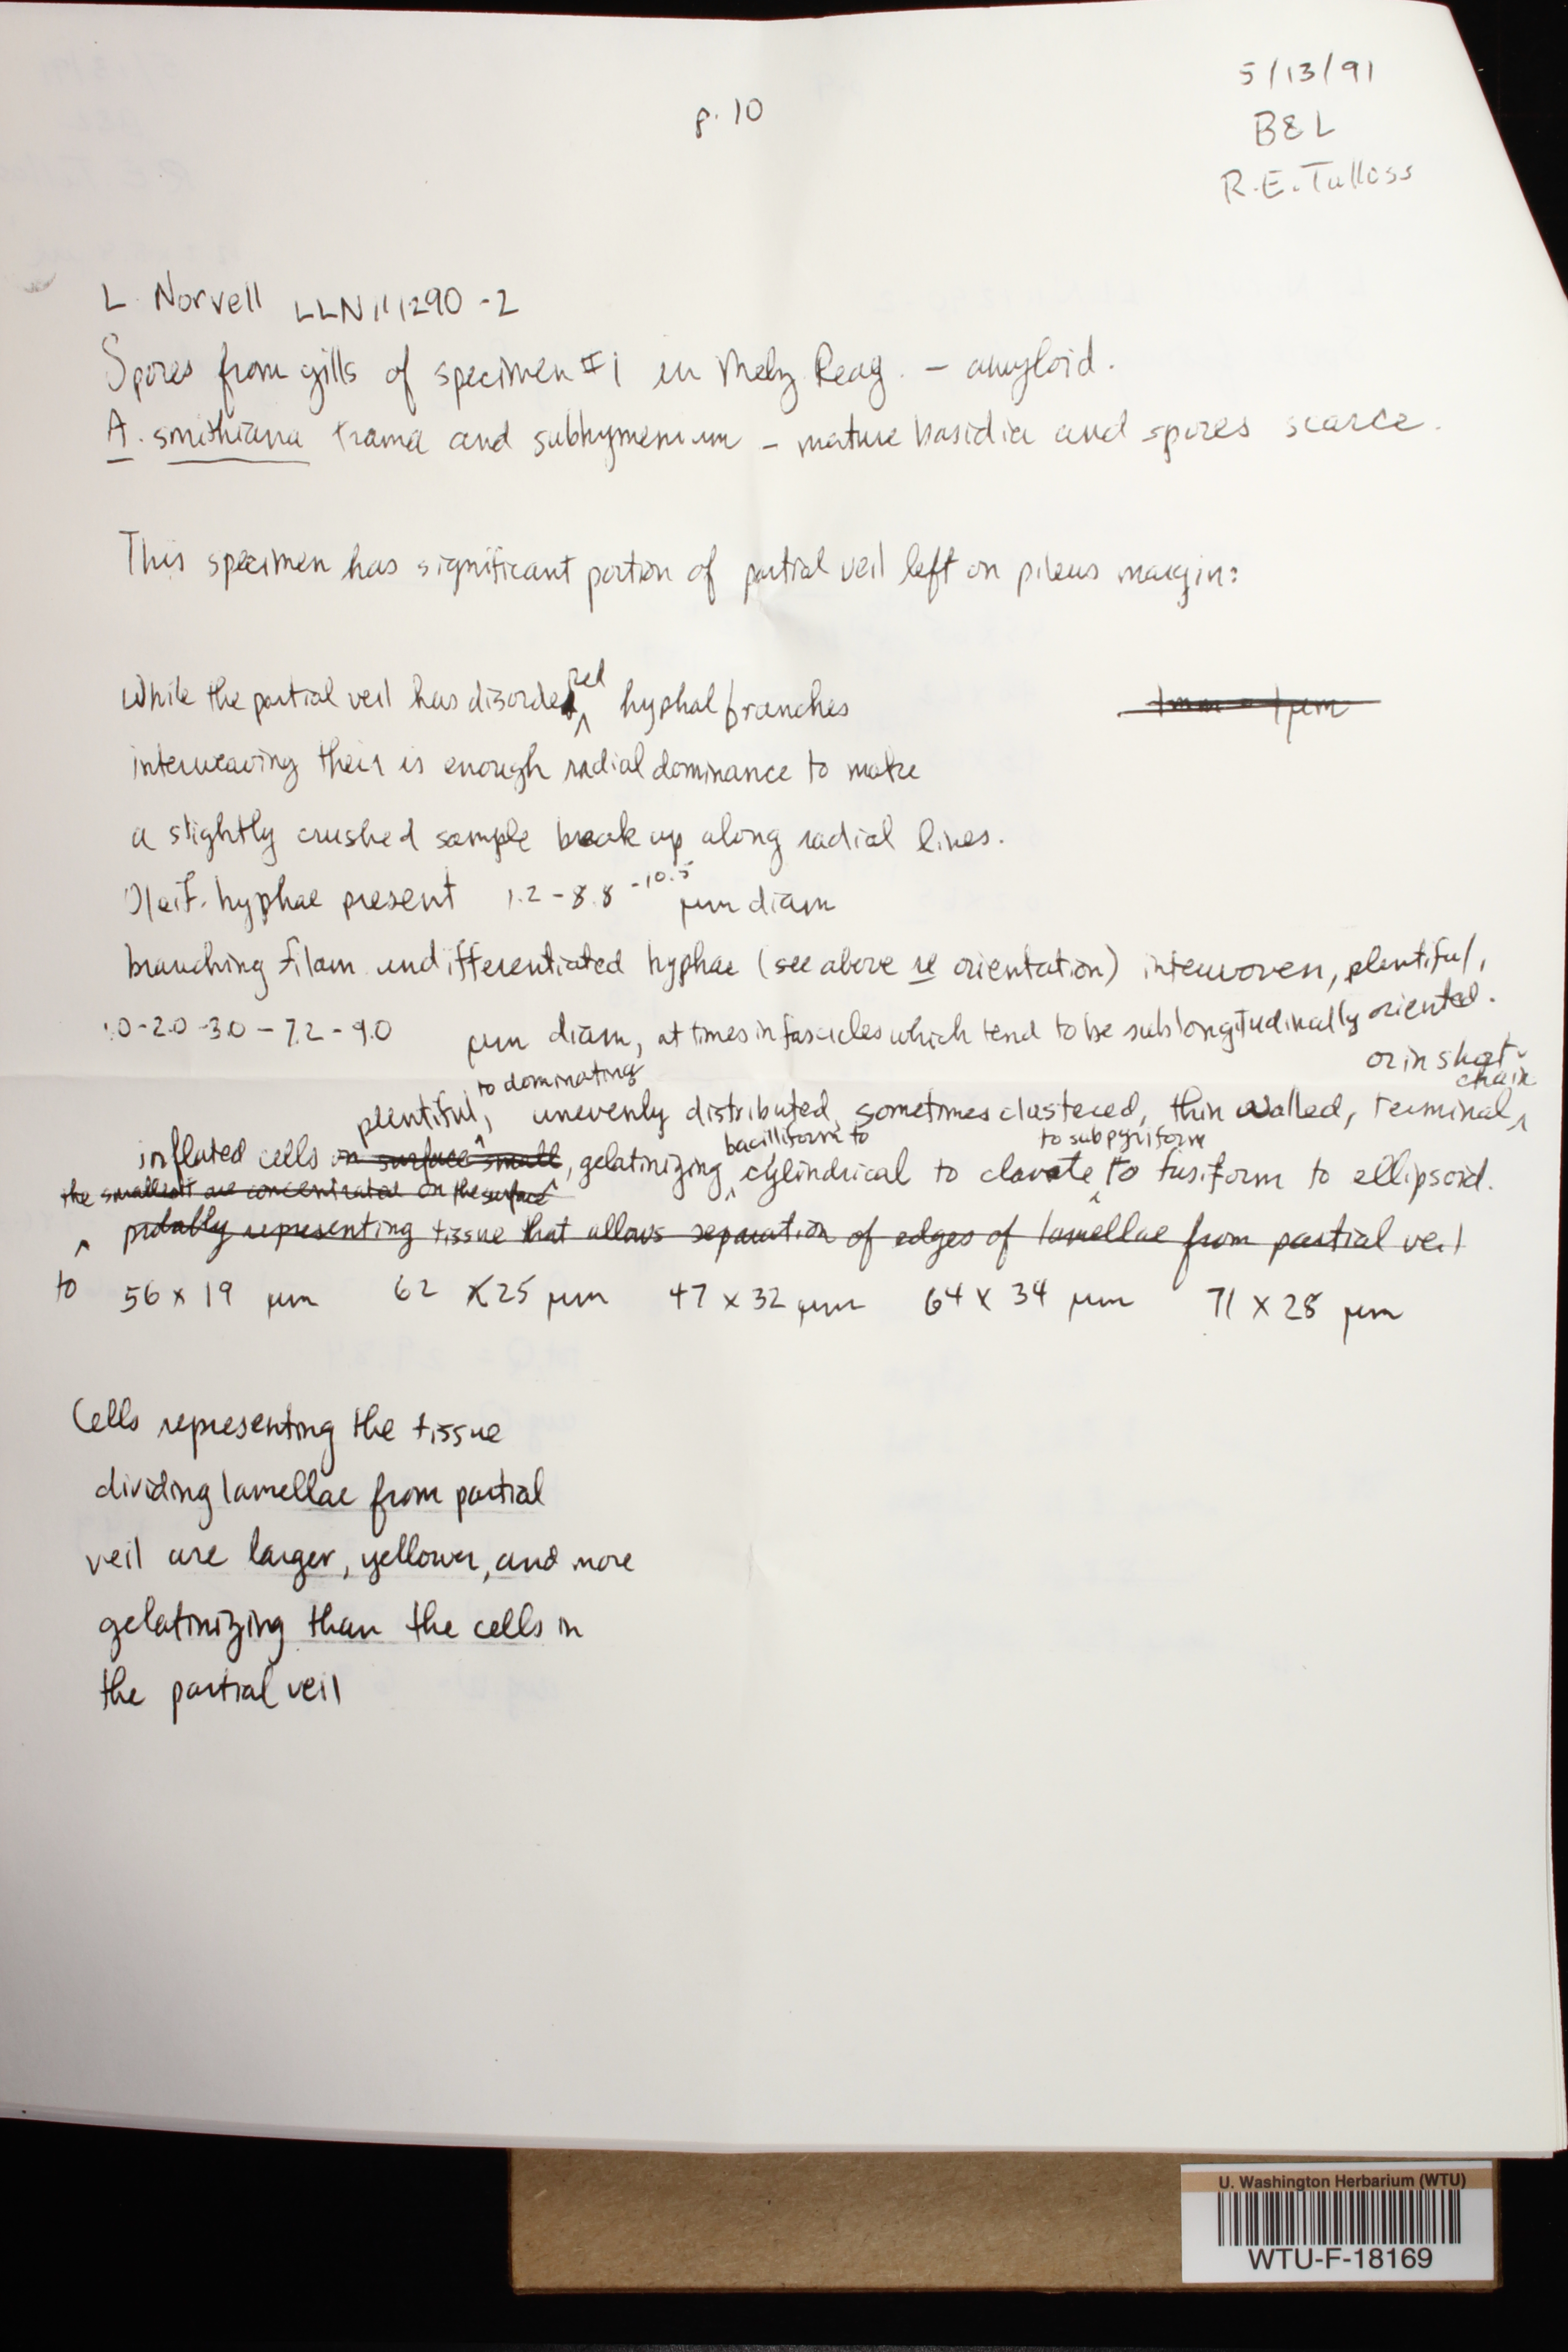 p. 10
5/13/91
B&L
R.E. Tulloss
L. Norvell LLN111290-2
Spores from gills of specimen #1 in Melz. Reag. – amyloid.
A. smithiana trama and subhymenium – mature basidia and spores scarce.
This specimen has significant portion of partial veil left on pileus margin:
While the partial veil has disordered hyphal branches
1mm = 1µm
interweaving their is enough radial dominance to make
a slightly crushed sample break up along radial lines.
Oleif. hyphae present 1.2 - 8.8 - 10.5 µm diam
branching filam. undifferentiated hyphae (see above re orientation) interwoven, plentiful,
1.0-2.0-3.0 - 7.2 - 9.0 µm diam, at times in fascicles which tend to be sublongitudinally oriented.
or in short chain
to dominating
plentiful, unevenly distributed, sometimes clustered, thin walled, terminal,
bacilliform to to subpyriform
inflated cells on surface small, gelatinizing cylindrical to clavate to fusiform to ellipsoid.
the smallest are concentrated on the surface
probably representing tissue that allows separation of edges of lamellae from partial veil
to 56 x 19 µm 62 x 25 µm 47 x 32 µm 64 x 34 µm 71 x 28 µm
Cells representing the tissue
dividing lamellae from partial
veil are larger, yellower, and more
gelatinizing than the cells in
the partial veil
U. Washington Herbarium (WTU)
WTU-F-18169